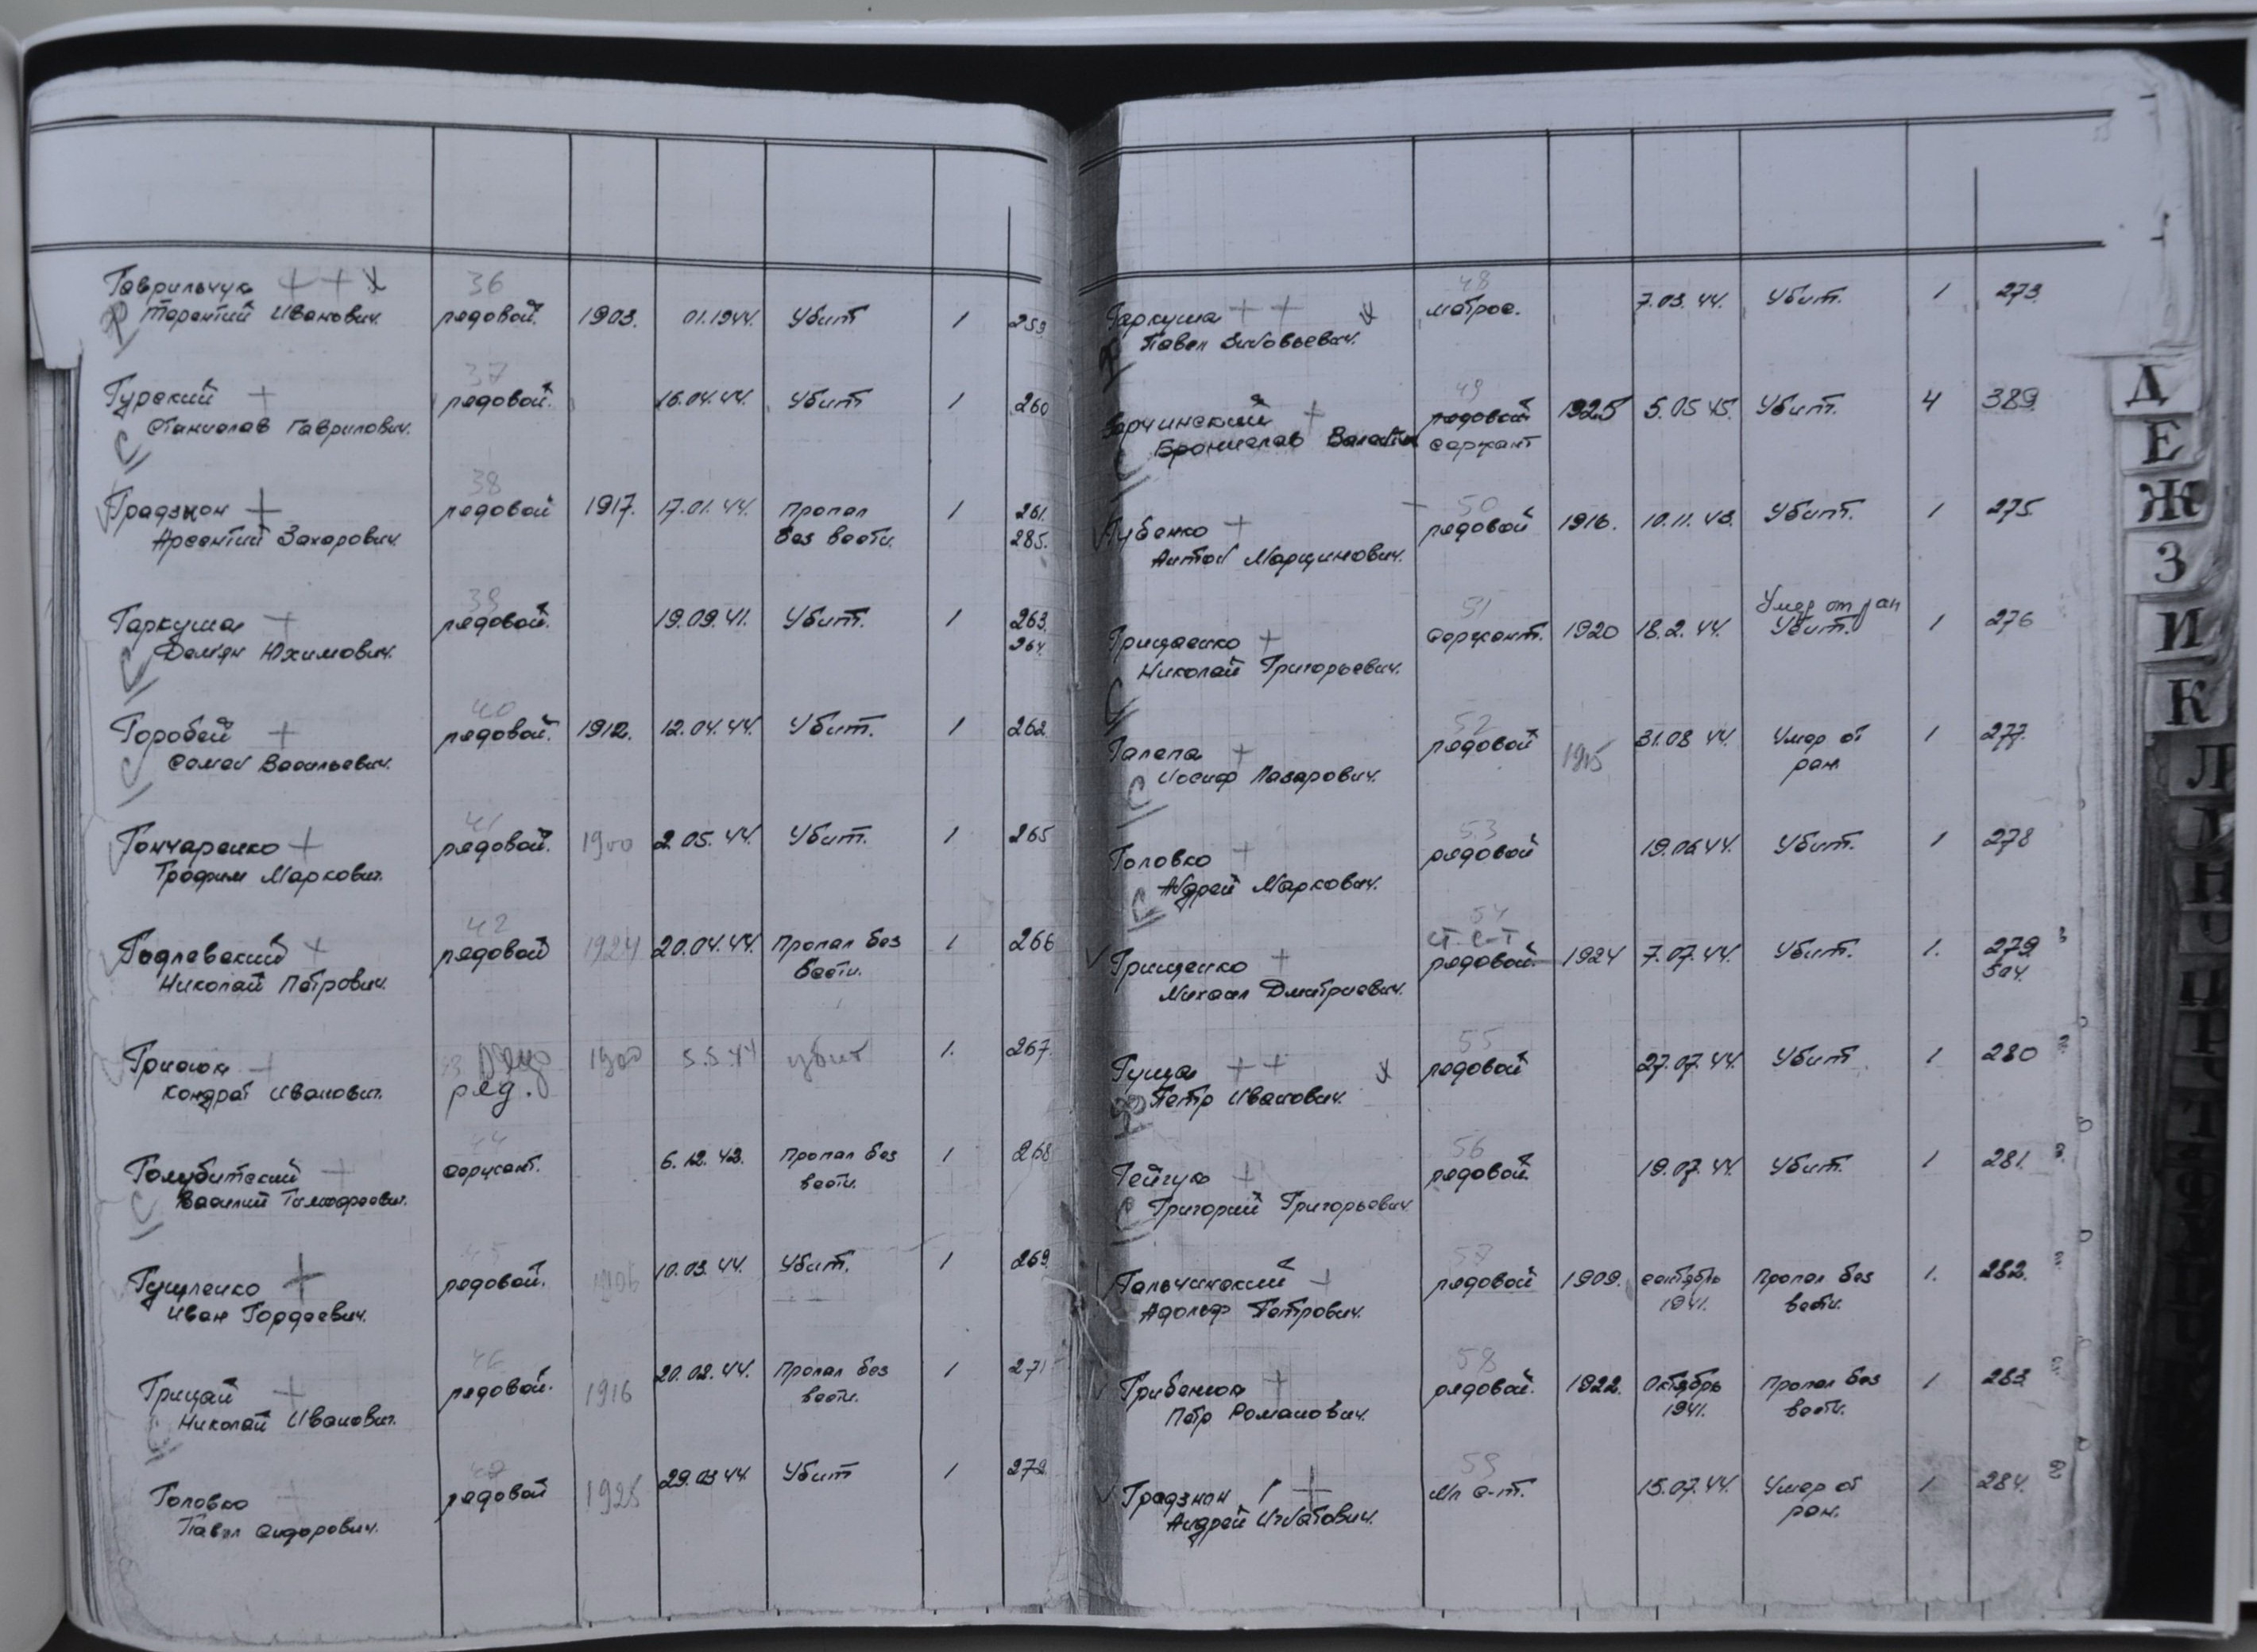 Гаврильчук + + х 36
Терентий Иванович. рядовой. 1903. 01.1944. Убит 1 259.
37
Гурский + рядовой. 16.04.44. Убит 1 260
Станислав Гаврилович.
С
38
Градзион + рядовой 1917. 17.01.44. Пропал 1 261.
Арсентий Захарович. без вести. 285.
39
Гаркуша + рядовой. 19.09.41. Убит. 1 263.
Демян Юхимович. 264.
С
40
Горобей + рядовой. 1912. 12.04.44. Убит. 1 262.
Семен Васильевич.
С
41
Гончаренко + рядовой. 1900 2.05.44. Убит. 1 265
Трофим Маркович.
42
Годлевский + рядовой 1924 20.04.44. Пропал без 1 266
Николай Петрович. вести.
Грисюк + 1900 5.5.44 убит 1. 267.
Кондрат Иванович. ряд.
44
Голубитский + сержант. 6.12.43. Пропал без 1 268
Василий Тимофеевич. вести.
С
45
Гущленко + рядовой. 1906 10.03.44. Убит. 1 269.
Иван Гордеевич.
46
Грицай + рядовой. 1916 20.02.44. Пропал без 1 271
Николай Иванович. вести.
С
47
Головко + рядовой 1925 29.03.44. Убит 1 272.
Павел Сидорович.
48
Гаркуша + + х матрос. 7.03.44. Убит. 1 273.
Павел Зиновьевич.
49
Гарчинский + рядовой 1925 5.05.45. Убит. 4 389.
Бронислав сержант
С
50
Губенко + рядовой 1916. 10.11.43. Убит. 1 275.
Антон Марцинович.
51 Умер от ран
Грищенко + сержант. 1920 18.2.44. Убит. 1 276
Николай Григорьевич.
С
52
Галепа + рядовой 1915 31.08.44. Умер от 1 277.
Иосиф Лазарович. ран.
С
53
Головко + рядовой 19.06.44. Убит. 1 278
Андрей Маркович.
С
54
ст. с-т
Грищенко + рядовой. 1924 7.07.44. Убит. 1. 279
Михаил Дмитриевич. 504.
55
Гуща + + х рядовой 27.07.44. Убит 1 280
Петр Иванович.
56
Гейчук + рядовой. 19.07.44. Убит. 1 281.
С Григорий Григорьевич
57
Гальчинский + рядовой 1909. сентябрь Пропал без 1. 282.
Адольф Петрович. 1941. вести.
58
Грибенюк + рядовой. 1922. Октябрь Пропал без 1 283.
Петр Романович. 1941. вести.
59
Градзион + мл с-т. 15.07.44. Умер от 1 284.
Андрей Игнатович. ран.
Д
Е
Ж
З
И
К
Л